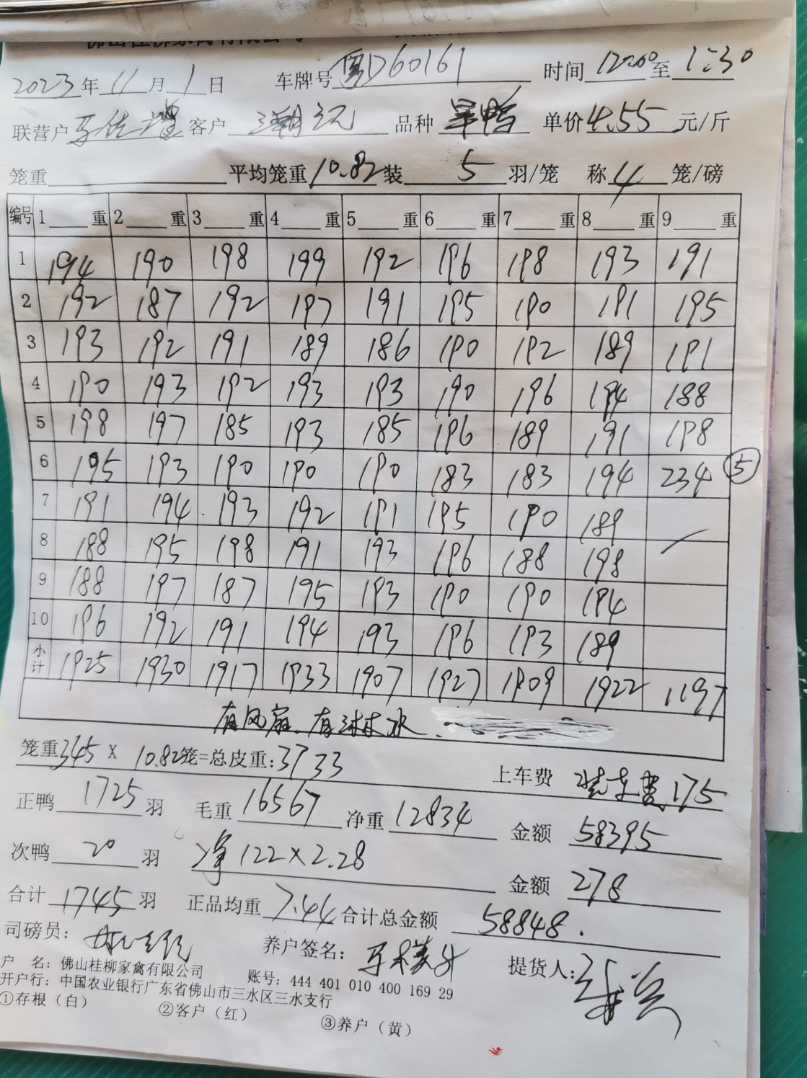 2023年11月1日 车牌号 粤D60161 时间 12:00至1:30
联营户 客户 品种 单价4.55元/斤
笼重 平均笼重10.82装5羽/笼 称4笼/磅
编号 1 重 2 重 3 重 4 重 5 重 6 重 7 重 8 重 9 重
1 194 190 198 199 192 196 198 193 191
2 192 187 192 197 191 195 190 191 195
3 193 192 191 189 186 190 192 189 191
4 190 193 192 193 193 190 196 194 188
5 198 197 185 193 185 196 189 191 198
6 195 193 190 190 190 183 183 194 234 ⑤
7 191 194 193 192 191 195 190 189
8 188 195 198 191 193 196 188 198
9 188 197 187 195 193 190 190 194
10 196 192 191 194 193 196 193 189
小计 1925 1930 1917 1933 1907 1927 1909 1922 1197
有风扇、有淋水
笼重345×10.82笼=总皮重:3733 上车费 装车费175
正鸭1725羽 毛重16567净重12834 金额58395
次鸭20羽 净122×2.28 金额278
合计1745羽 正品均重7.44合计总金额58848.
司磅员: 养户签名: 提货人:
户 名:佛山桂柳家禽有限公司 账号:444 401 010 400 169 29
开户行:中国农业银行广东省佛山市三水区三水支行
①存根(白) ②客户(红) ③养户(黄)